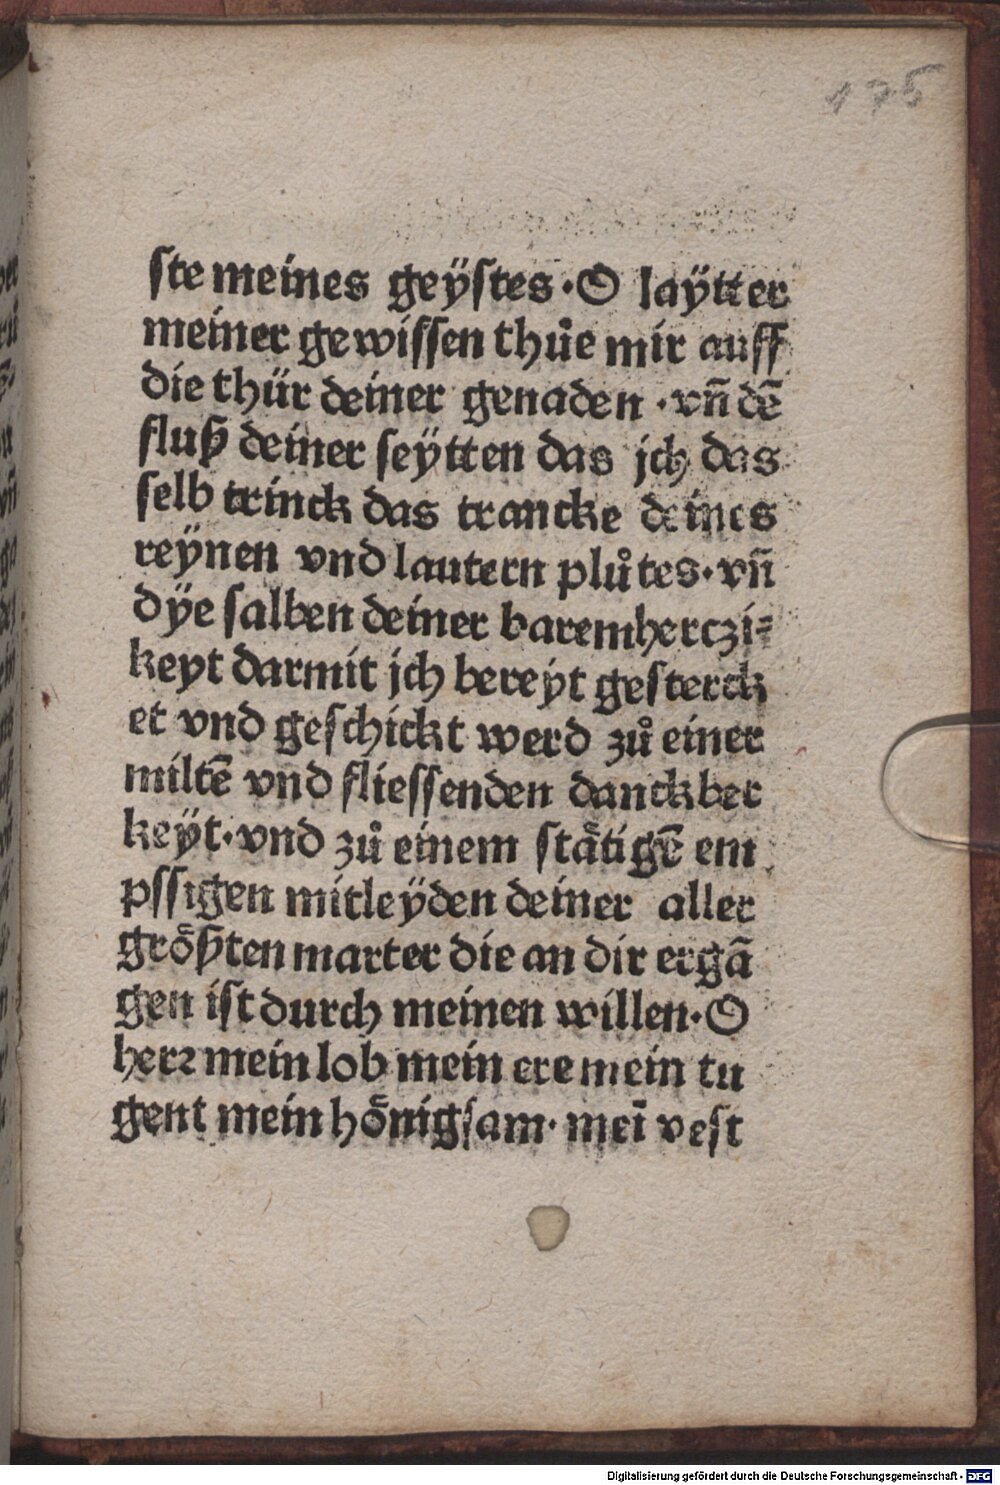 175
ſte meines geÿſtes · O laÿtter
meiner gewiſſen thuͦe mir auff
die thür deiner genaden · vñ dē
fluß deiner ſeÿtten das jch das
ſelb trinck das trancke deines
reÿnen vnd lautern pluͦtes · vñ
dÿe ſalben deiner baremherczi⸗
keyt darmit jch bereyt geſterck
et vnd geſchickt werd zuͦ einer
miltē vnd flieſſenden danckber
keÿt · vnd zuͦ einem ſtaͤtigē em
pſſigen mitleÿden deiner aller
groͤßten marter die an dir ergā
gen iſt durch meinen willen · O
herꝛ mein lob mein ere mein tu
gent mein hoͤnigſam · mei᷑ veſt
Digitalisierung gefördert durch die Deutsche Forschungsgemeinschaft - DFG